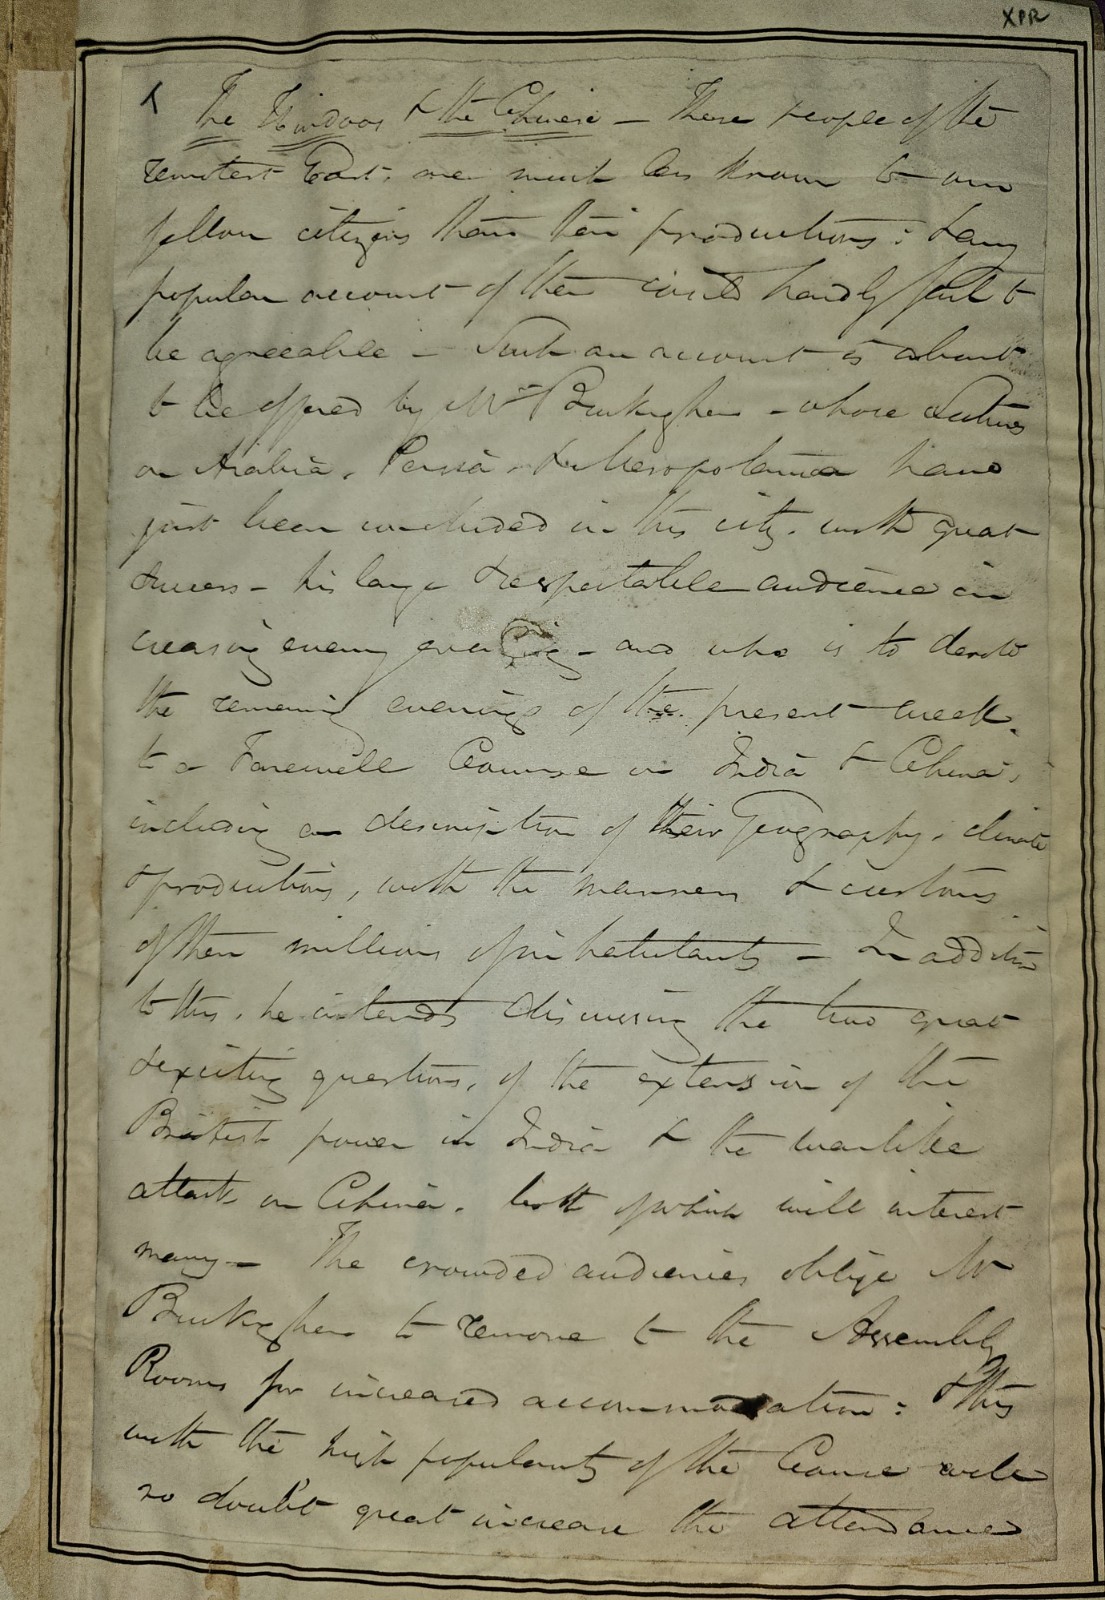 XPR
The Hindoos & the Chinese — These people of the
remotest East, are much less known to our
fellow citizens than their productions: & any
popular account of them could hardly fail to
be agreeable — Such an account is about
to be offered by Mr Buckingham — whose Lectures
on Arabia, Persia, & Mesopotamia have
just been concluded in this city, with great
success — his large & respectable audience in
creasing every evening — and who is to devote
the remaining evenings of the present week,
to a Farewell Course on India & China,
including a description of their Geography, climate
& productions, with the manners & customs
of their millions of inhabitants — In addition
to this, he intends discussing the two great
& exciting questions, of the extension of the
British power in India & the warlike
attack on China, both of which will interest
many — The crowded audiences oblige Mr
Buckingham to remove to the Assembly
Rooms for increased accommodation: & this
with the high popularity of the Course will
no doubt great increase the attendance